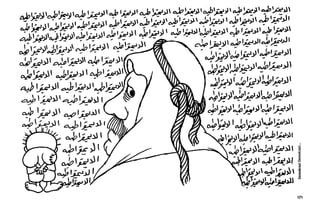 الديمقراطيه الديمقراطيه الديمقراطيه الديمقراطيه الديمقراطيه الديمقراطيه الديمقراطيه الديمقراطيه
الديمقراطيه الديمقراطيه الديمقراطيه الديمقراطيه الديمقراطيه الديمقراطيه الديمقراطيه الديمقراطيه
الديمقراطيه الديمقراطيه الديمقراطيه الديمقراطيه الديمقراطيه الديمقراطيه الديمقراطيه الديمقراطيه
الديمقراطيه الديمقراطيه الديمقراطيه الديمقراطيه الديمقراطيه
الديمقراطيه الديمقراطيه الديمقراطيه الديمقراطيه الديمقراطيه
الديمقراطيه الديمقراطيه الديمقراطيه الديمقراطيه
الديمقراطيه الديمقراطيه الديمقراطيه الديمقراطيه
الديمقراطيه الديمقراطيه الديمقراطيه الديمقراطيه
الديمقراطيه الديمقراطيه الديمقراطيه الديمقراطيه
الديمقراطيه الديمقراطيه الديمقراطيه الديمقراطيه
الديمقراطيه الديمقراطيه الديمقراطيه
الديمقراطيه الديمقراطيه الديمقراطيه
الديمقراطيه الديمقراطيه الديمقراطيه
الديمقراطيه الديمقراطيه الديمقراطيه
الديمقراطيه الديمقراطيه الديمقراطيه